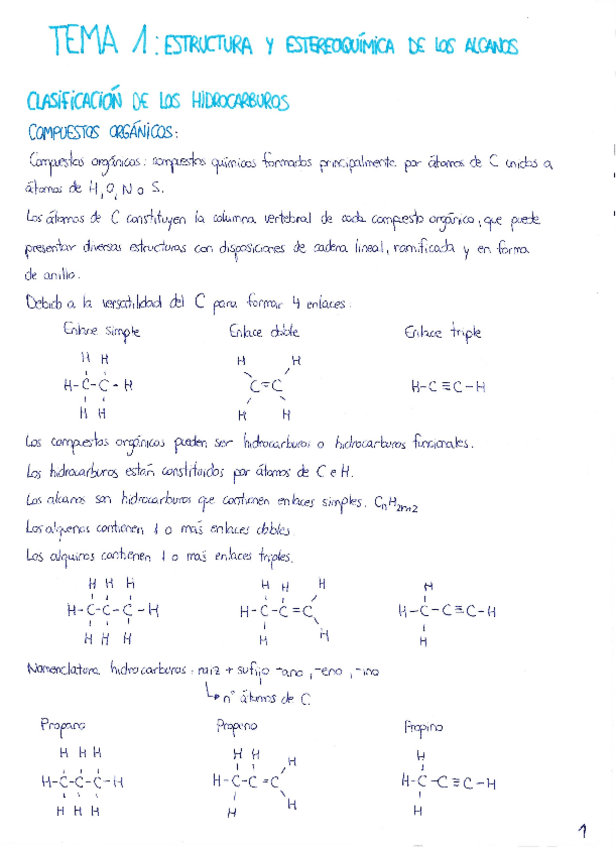 TEMA 1: ESTRUCTURA Y ESTEREOQUÍMICA DE LOS ALCANOS
CLASIFICACIÓN DE LOS HIDROCARBUROS
COMPUESTOS ORGÁNICOS:
Compuestos orgánicos: compuestos químicos formados principalmente por átomos de C unidos a
átomos de H, O, N o S.
Los átomos de C constituyen la columna vertebral de cada compuesto orgánico, que puede
presentar diversas estructuras con disposiciones de cadena lineal, ramificada y en forma
de anillo.
Debido a la versatilidad del C para formar 4 enlaces:
Enlace simple Enlace doble Enlace triple
H H H H
H-C-C-H C=C H-C≡C-H
H H H H
Los compuestos orgánicos pueden ser hidrocarburos o hidrocarburos funcionales.
Los hidrocarburos están constituidos por átomos de C e H.
Los alcanos son hidrocarburos que contienen enlaces simples. CnH2n+2
Los alquenos contienen 1 o más enlaces dobles.
Los alquinos contienen 1 o más enlaces triples.
H H H H H H H
H-C-C-C-H H-C-C=C H-C-C≡C-H
H H H H H H
Nomenclatura hidrocarburos: raiz + sufijo -ano, -eno, -ino
↳ nº átomos de C
Propano Propeno Propino
H H H H H H H
H-C-C-C-H H-C-C=C H-C-C≡C-H
H H H H H H
1